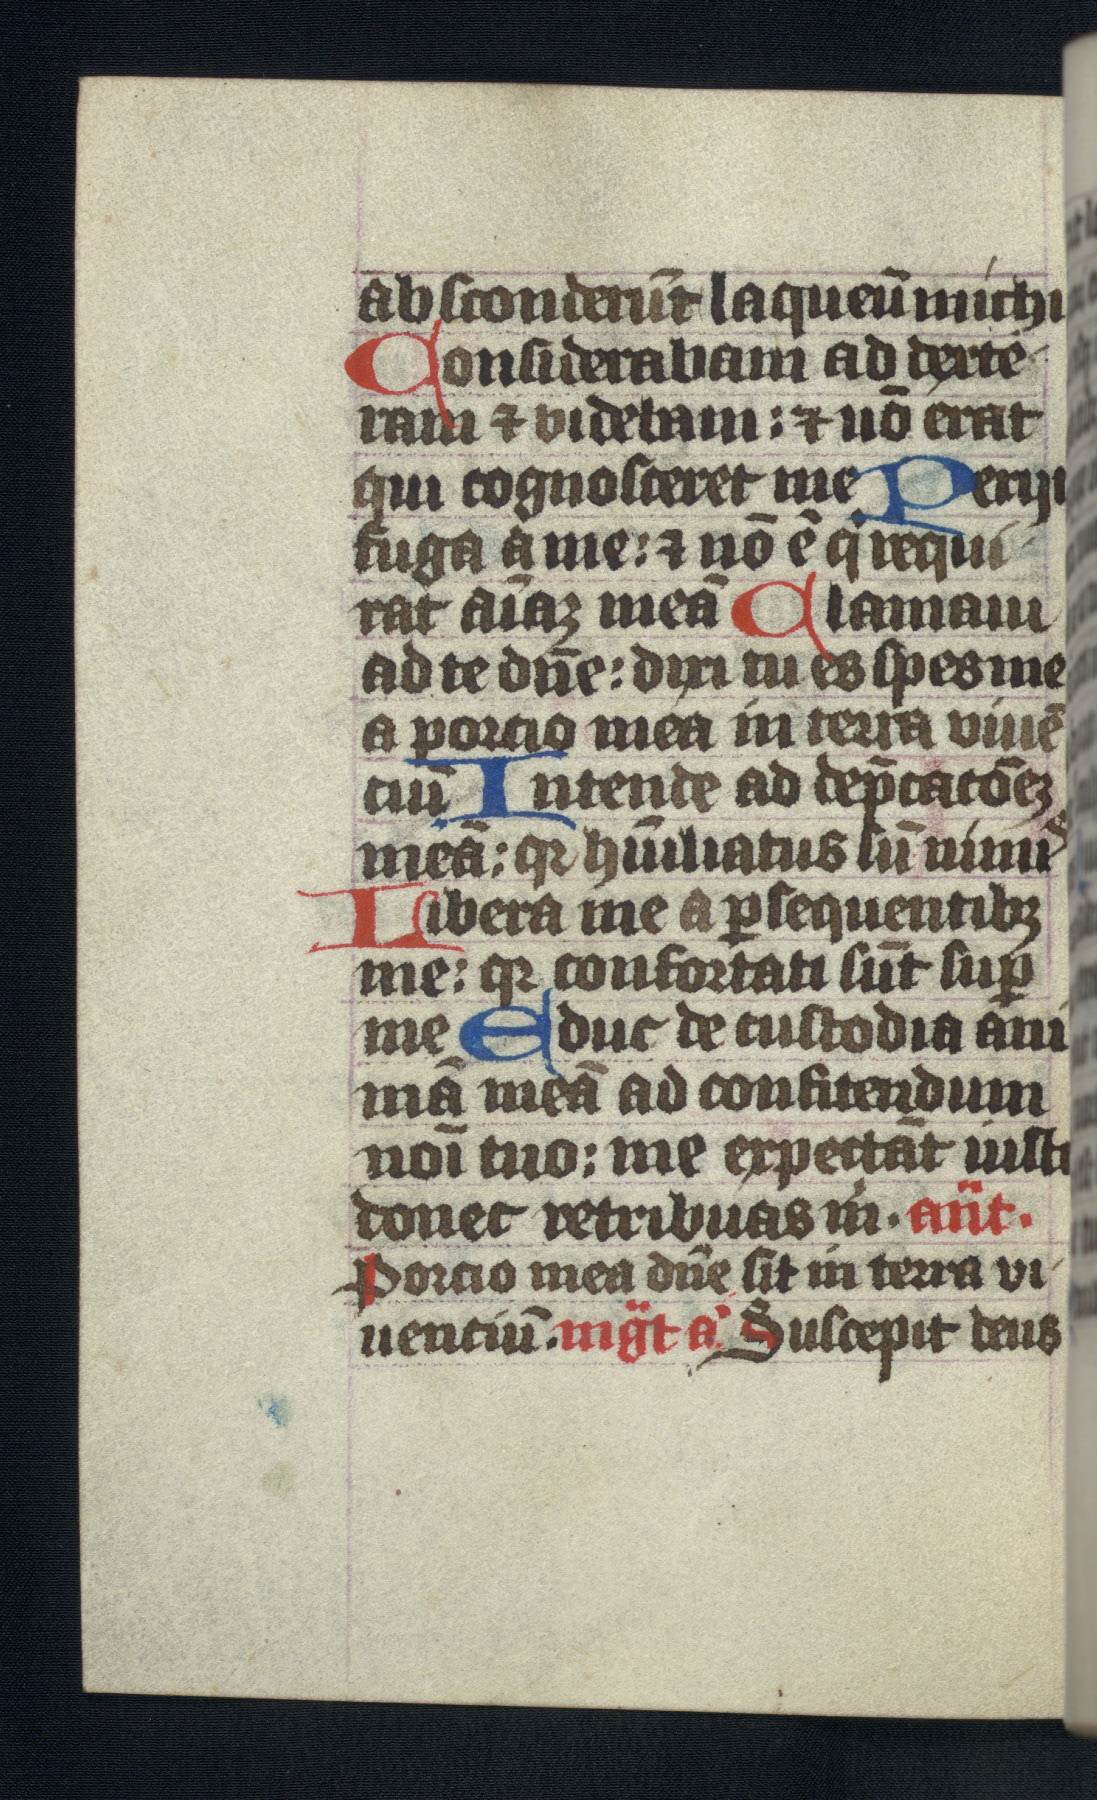 absconderūt laqueū michi
Considerabam ad dexte
ram ⁊ videbam: ⁊ nō erat
qui cognosceret me Perijt
fuga a me: ⁊ nō ē qͥ requi
rat aīaꝫ meā Clamaui
ad te dn̄e: dixi tu es spes me
a porcio mea in terra viuē
ciū Intende ad dep̄catōeꝫ
meā: qꝛ hūiliatus sū nimis
Libera me a ꝑsequentibꝫ
me: qꝛ confortati sūt suꝑ
me Educ de custodia ani
mā meā ad confitendum
noī tuo: me expectāt iusti
donec retribuas m̄. an̄t.
Porcio mea dn̄e sit in terra vi
uenciū. mgͫt a Suscepit deus